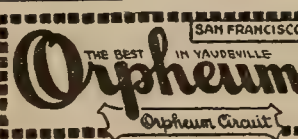 SAN FRANCISCO
THE BEST IN VAUDEVILLE
Orpheum
Orpheum Circuit